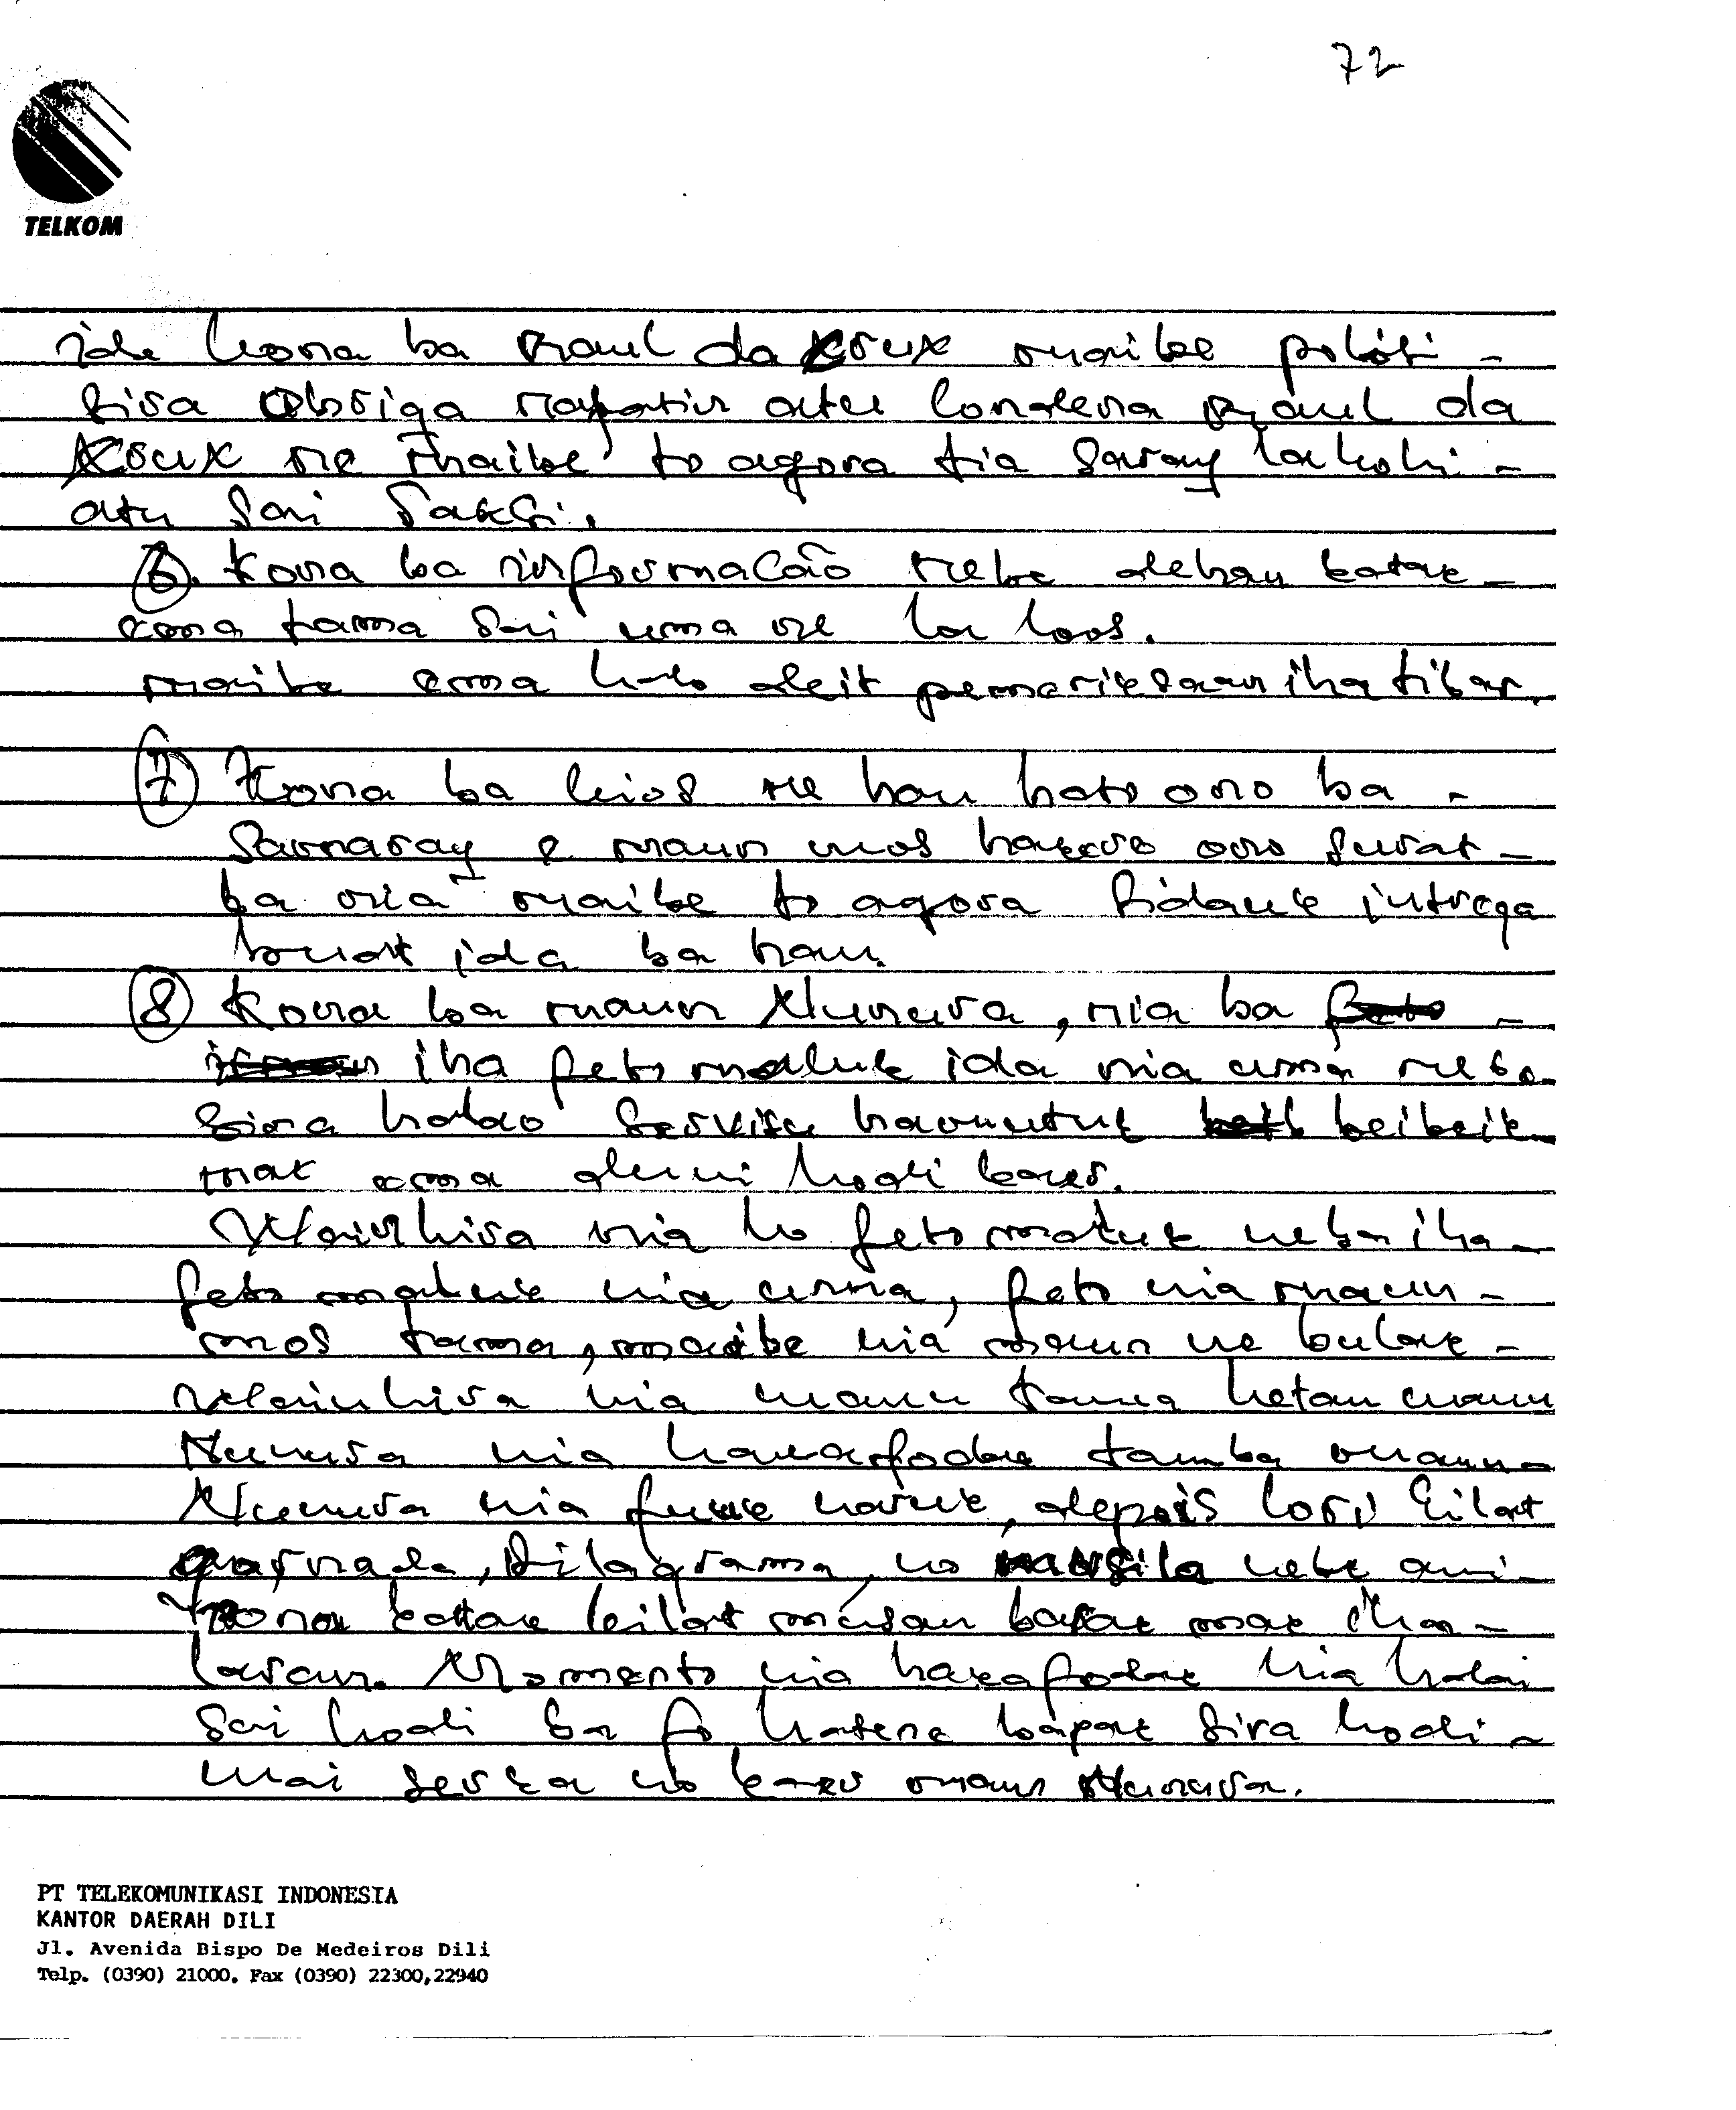 72
TELKOM
ida kona ba Raul da Kroux maibe politi -
sira obriga nafatin atu condena Raul da
Kroux ne maibe to agora tia Saray lakohi -
atu sai saksi.
6. Kona ba informacão nebe dehan katak -
ema tama sai uma ne la loos.
maibe ema halo deit pemariksaan iha tibar.
7 Kona ba kios ne hau hato ono ba -
Samaray e maun mos hakero ono surat -
ba nia maibe to agora sidauk intrega
buat ida ba hau.
8 Kona ba maun Nunura, nia ba -
iha feto maluk ida nia uma nebe
sira halao servisu hamutuk beibeik
mak ema duni hodi kaer.
Wainhira nia ho feto maluk neba iha -
feto maluk nia uma, feto nia maun -
mos tama, maibe nia maun ne bulak -
Wainhira nia maun tama hetan maun
Nunura nia hakafodak tamba maun -
Nunura nia fuuk naruk, depois lori kilat
granada, Dilagrama, no nebe ami -
kona katak kilat musan barak mak iha -
laran. Momento nia hakafodak nia halai
sai hodi ba fo hatene bapak sira hodi -
mai serka no kaer maun Nunura.
PT TELEKOMUNIKASI INDONESIA
KANTOR DAERAH DILI
Jl. Avenida Bispo De Medeiros Dili
Telp. (0390) 21000. Fax (0390) 22300,22940